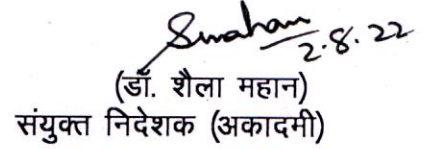 Smahan
2.8.22
(डॉ. शैला महान)
संयुक्त निदेशक (अकादमी)